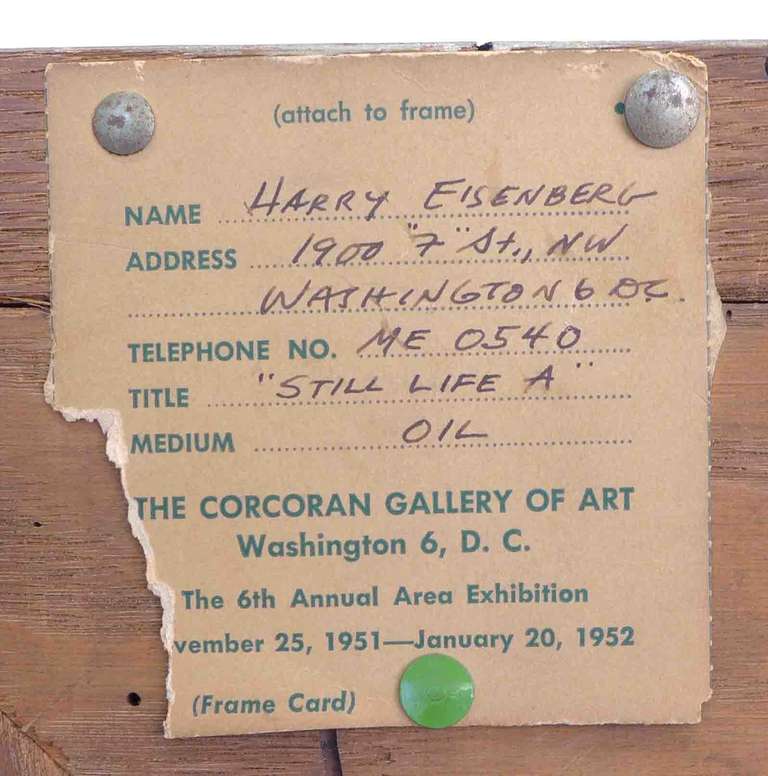 (attach to frame)
NAME HARRY EISENBERG
ADDRESS 1900 "F" St., NW
WASHINGTON 6 DC.
TELEPHONE NO. ME 0540
TITLE "STILL LIFE A"
MEDIUM OIL
THE CORCORAN GALLERY OF ART
Washington 6, D. C.
The 6th Annual Area Exhibition
vember 25, 1951—January 20, 1952
(Frame Card)